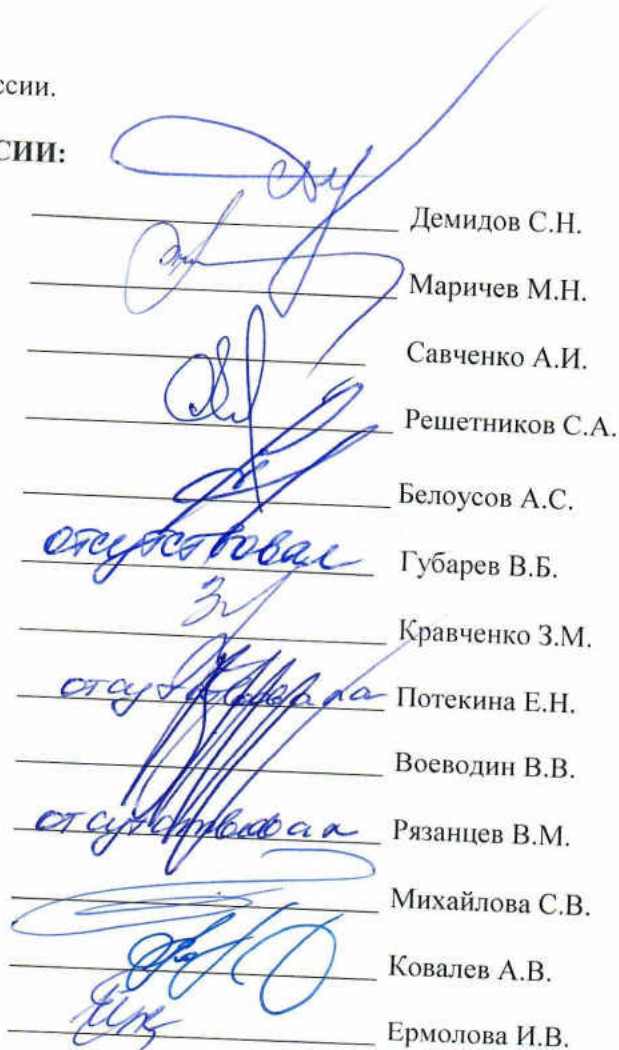 ссии.
СИИ:
Демидов С.Н.
Маричев М.Н.
Савченко А.И.
Решетников С.А.
Белоусов А.С.
отсутствовал Губарев В.Б.
Кравченко З.М.
отсутствовала Потекина Е.Н.
Воеводин В.В.
отсутствовал Рязанцев В.М.
Михайлова С.В.
Ковалев А.В.
Ермолова И.В.